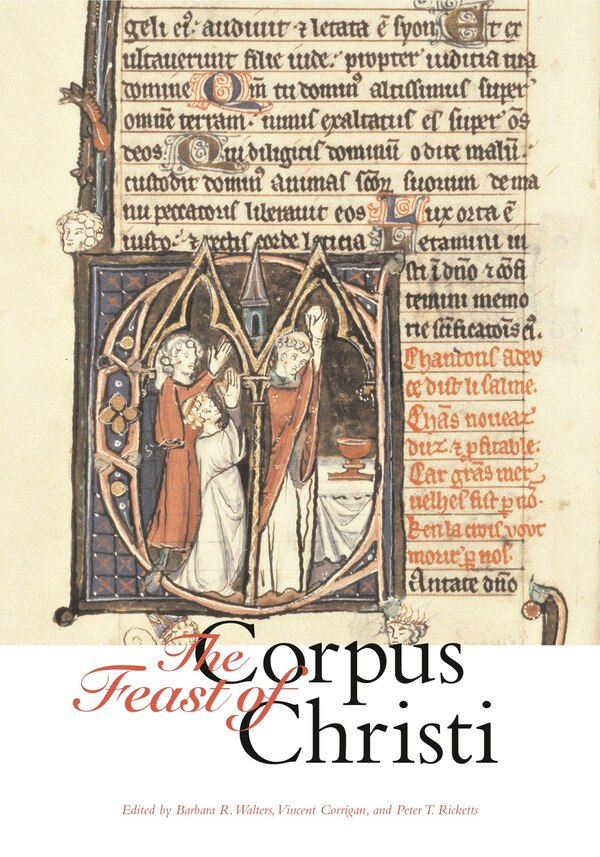 geli eiꝰ. audiuit ⁊ letata ē syon Et ex
ultauerunt filie iude. propter iudicia tua
domine Qm̄ tu dominꝰ altissimus super
omnē terram. nimis exaltatus es super ōs
deos Qui diligitis dominū odite malū.
custodit dominꝰ animas sc̄oꝝ suorum de ma
nu peccatoris liberauit eos Lux orta ē
iusto. ⁊ rectis corde leticia Letamini iu
sti ī dn̄o ⁊ cōfi
temini memo
rie sc̄ificatōis eiꝰ.
Chantons a deu
ce dist li salme.
Chās nouear
duz. ⁊ ꝓfitable.
Car grās mer
uelhes fist ꝑ no.
Ken la crois vout
morir ꝑ nos.
Antate dn̄o
The Corpus
Feast of Christi
Edited by Barbara R. Walters, Vincent Corrigan, and Peter T. Ricketts